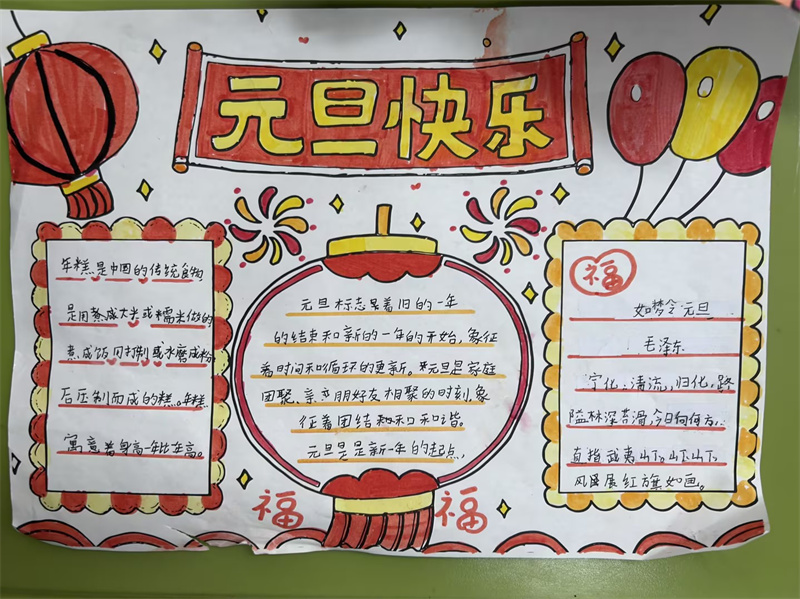 元旦快乐
年糕是中国的传统食物
是用煮成大米或糯米做的
煮成饭
或水磨成粉
后压制而成的糕。年糕
寓意着身高一年比年高。
元旦标志着旧的一年
的结束和新的一年的开始,象征
着时间和循环的更新。元旦是家庭
团聚、亲友朋好友相聚的时刻,象
征着团结和和谐。
元旦是是新一年的起点,
福
如梦令 元旦
毛泽东
宁化、清流,归化,路
隘林深苔滑,今日何何方,
直指武夷山下。山下山下
风展红旗如画。
福
福